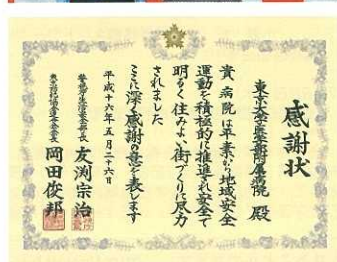 感謝状
東京大学医学部附属病院 殿
貴病院は平素から地域安全
運動を積極的に推進され安全で
明るく住みよい街づくりに尽力
されました
ここに深く感謝の意を表します
平成十六年五月二十六日
友渕宗治
岡田俊邦